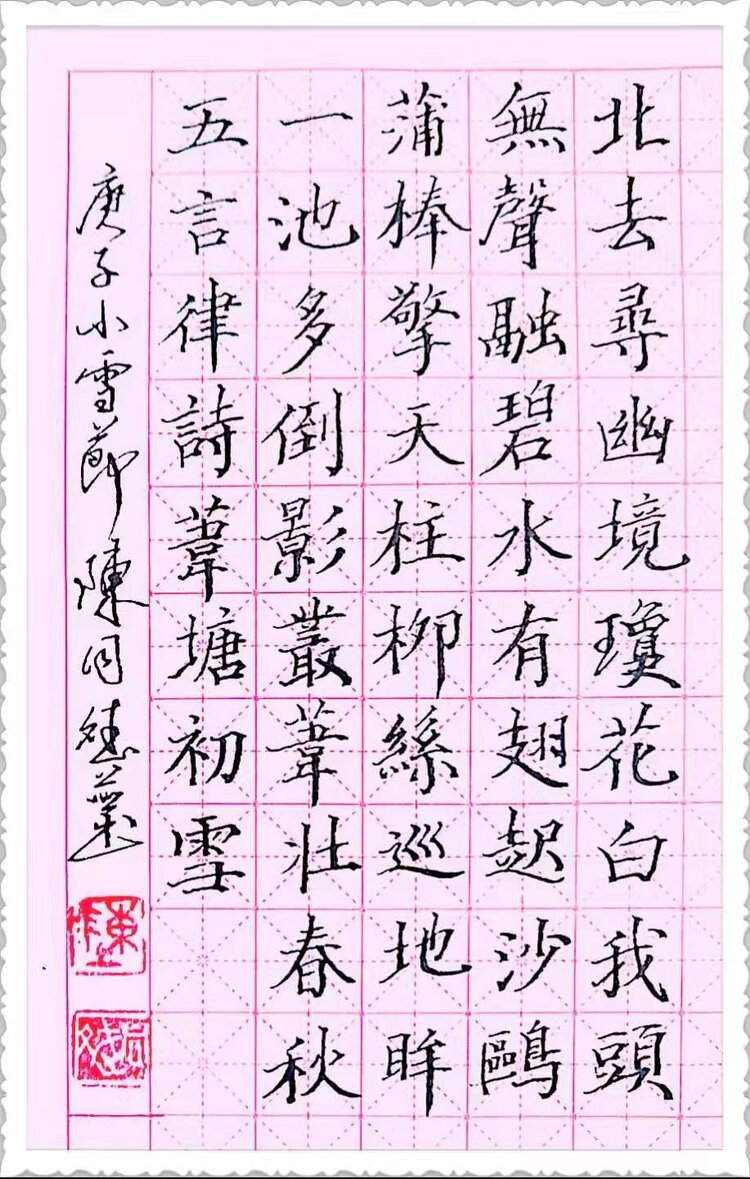 北去尋幽境瓊花白我頭
無聲融碧水有翅起沙鷗
蒲棒擎天柱柳絲巡地眸
一池多倒影叢葦壯春秋
五言律詩葦塘初雪
庚子小雪節陳同